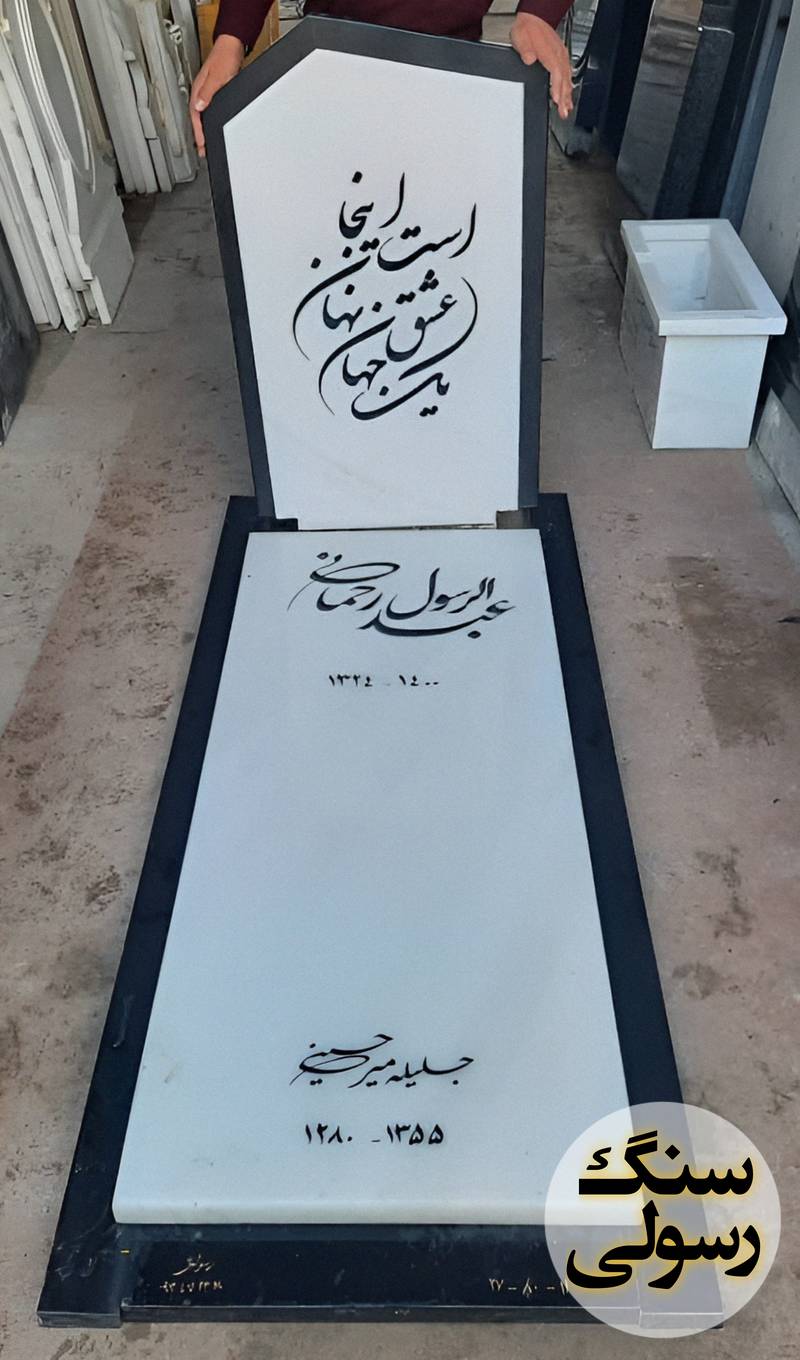 یک جهان عشق نهان است اینجا
عبدالرسول رحمانی
۱۳۲٤ - ۱٤۰۰
جلیله میرحسینی
۱۲۸۰ - ۱۳۵۵
سنگ
رسولی